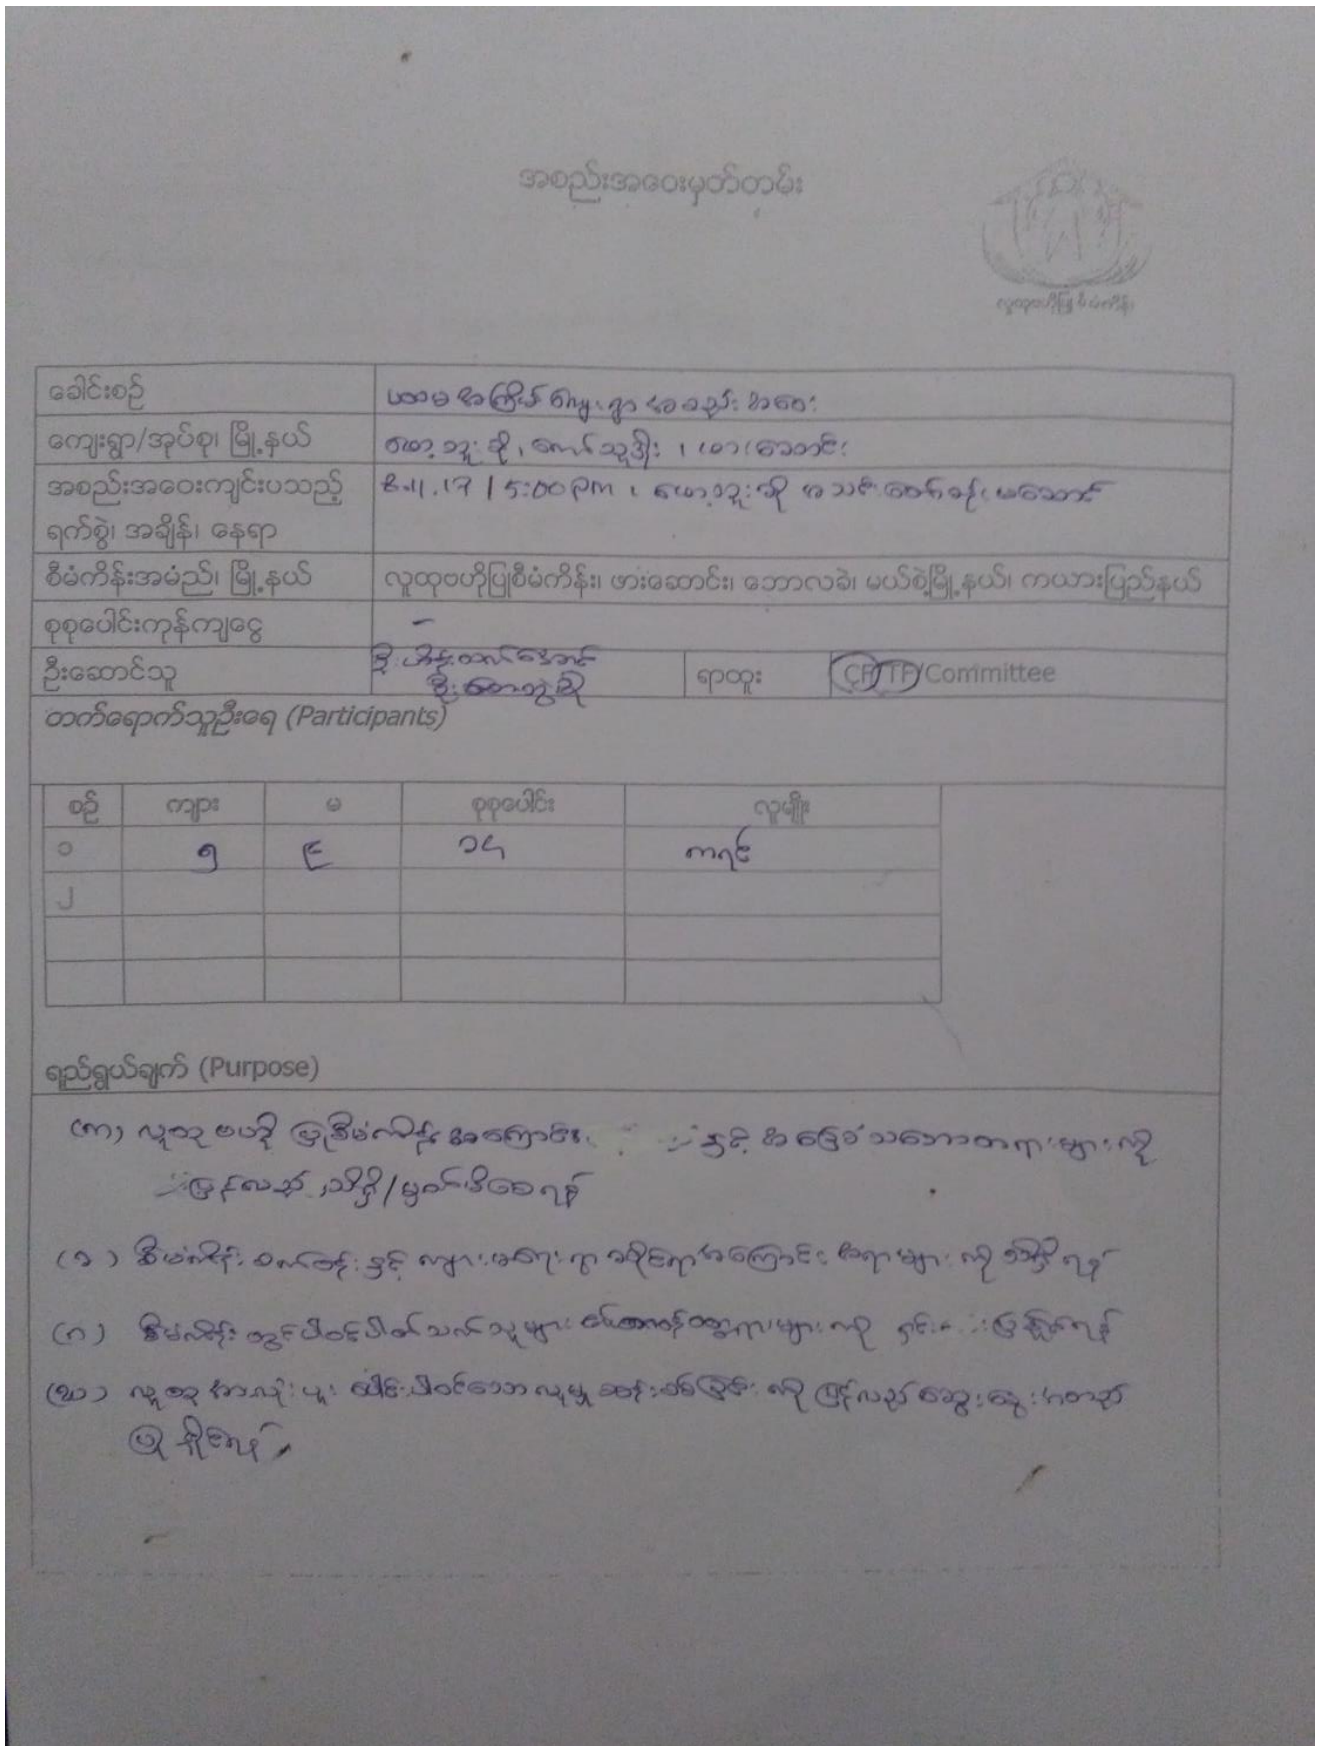 အစည်းအဝေးမှတ်တမ်း
လူထုဗဟိုပြုစီမံကိန်း
ခေါင်းစဉ် ပထမအကြိမ် ကျေးရွာအစည်းအဝေး
ကျေးရွာ/အုပ်စု၊ မြို့နယ်
အစည်းအဝေးကျင်းပသည့် 8.11.17 / 5:00 pm
ရက်စွဲ၊ အချိန်၊ နေရာ
စီမံကိန်းအမည်၊ မြို့နယ် လူထုဗဟိုပြုစီမံကိန်း၊ ဖားဆောင်း၊ ဘောလခဲ၊ မယ်စဲ့မြို့နယ်၊ ကယားပြည်နယ်
စုစုပေါင်းကုန်ကျငွေ -
ဦးဆောင်သူ ရာထူး CF/TF/Committee
တက်ရောက်သူဦးရေ (Participants)
စဉ် ကျား မ စုစုပေါင်း လူမျိုး
၁ ၅ ၉ ၁၄ ကရင်
၂
ရည်ရွယ်ချက် (Purpose)
(က) လူထုဗဟိုပြုစီမံကိန်းအကြောင်း နှင့် အခြေခံသဘောတရားများကို
ပြန်လည်သိရှိ/မှတ်မိစေရန်
(ခ) စီမံကိန်းစက်ဝန်းနှင့် ကျား၊မရေးရာဆိုင်ရာအကြောင်းအရာများကို သိရှိရန်
(ဂ) စီမံကိန်းတွင်ပါဝင်ပတ်သက်သူများ တာဝန်ဝတ္တရားများကို ရှင်း
(ဃ) လူထုအားလုံးပူးပေါင်းပါဝင်သော လူမှုဆန်းစစ်ခြင်းကို ပြန်လည်ဆွေးနွေးအတည်
ပြုနိုင်ရန်